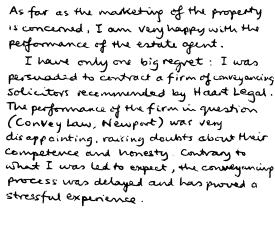 As far as the marketing of the property
is concerned, I am very happy with the
performance of the estate agent.
I have only one big regret: I was
persuaded to contract a firm of conveyancing
solicitors recommended by Haart Legal.
The performance of the firm in question
(Convey Law, Newport) was very
disappointing, raising doubts about their
competence and honesty. Contrary to
what I was led to expect, the conveyancing
process was delayed and has proved a
stressful experience.